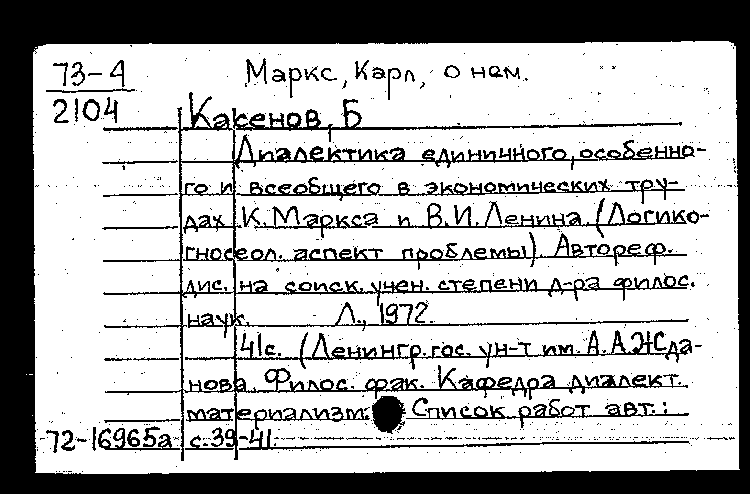 73-4 Маркс, Карл, о нем.
2104 Касенов, Б
Диалектика единичного, особенно-
го и всеобщего в экономических тру-
дах К. Маркса и В.И. Ленина (Логико-
гносеол. аспект проблемы). Автореф.
дис. на соиск. учен. степени д-ра филос.
наук. Л., 1972.
41с. (Ленингр. гос. ун-т им. А.А. Жда-
нова. Филос. фак. Кафедра диалект.
материализм. Список работ авт.:
72-16965а с. 39-41.